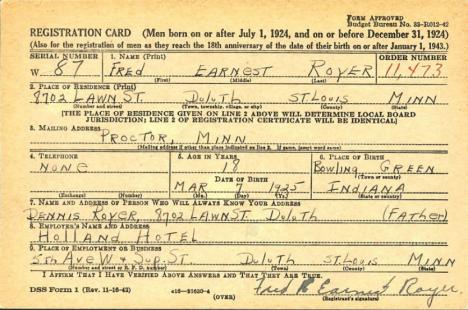 FORM APPROVED
Budget Bureau No. 33-R012-42
REGISTRATION CARD (Men born on or after July 1, 1924, and on or before December 31, 1924)
(Also for the registration of men as they reach the 18th anniversary of the date of their birth on or after January 1, 1943.)
SERIAL NUMBER 1. NAME (Print) ORDER NUMBER
W 87 FRED EARNEST ROYER 11,473
(First) (Middle) (Last)
2. PLACE OF RESIDENCE (Print)
8702 LAWN ST. DULUTH ST. LOUIS MINN
(Number and street) (Town, township, village, or city) (County) (State)
[THE PLACE OF RESIDENCE GIVEN ON LINE 2 ABOVE WILL DETERMINE LOCAL BOARD
JURISDICTION; LINE 2 OF REGISTRATION CERTIFICATE WILL BE IDENTICAL]
3. MAILING ADDRESS
PROCTOR, MINN
[Mailing address if other than place indicated on line 2. If same, insert word same]
4. TELEPHONE 5. AGE IN YEARS 6. PLACE OF BIRTH
NONE 18 BOWLING GREEN
DATE OF BIRTH (Town or county)
MAR 7 1925 INDIANA
(Exchange) (Number) (Mo.) (Day) (Yr.) (State or country)
7. NAME AND ADDRESS OF PERSON WHO WILL ALWAYS KNOW YOUR ADDRESS
DENNIS ROYER, 8702 LAWN ST. DULUTH (FATHER)
8. EMPLOYER'S NAME AND ADDRESS
HOLLAND HOTEL
9. PLACE OF EMPLOYMENT OR BUSINESS
5th AVE W & SUP. ST DULUTH ST. LOUIS MINN
(Number and street or R. F. D. number) (Town) (County) (State)
I AFFIRM THAT I HAVE VERIFIED ABOVE ANSWERS AND THAT THEY ARE TRUE.
DSS Form 1 (Rev. 11-16-42) (OVER) Earnest Royer
(Registrant's signature)